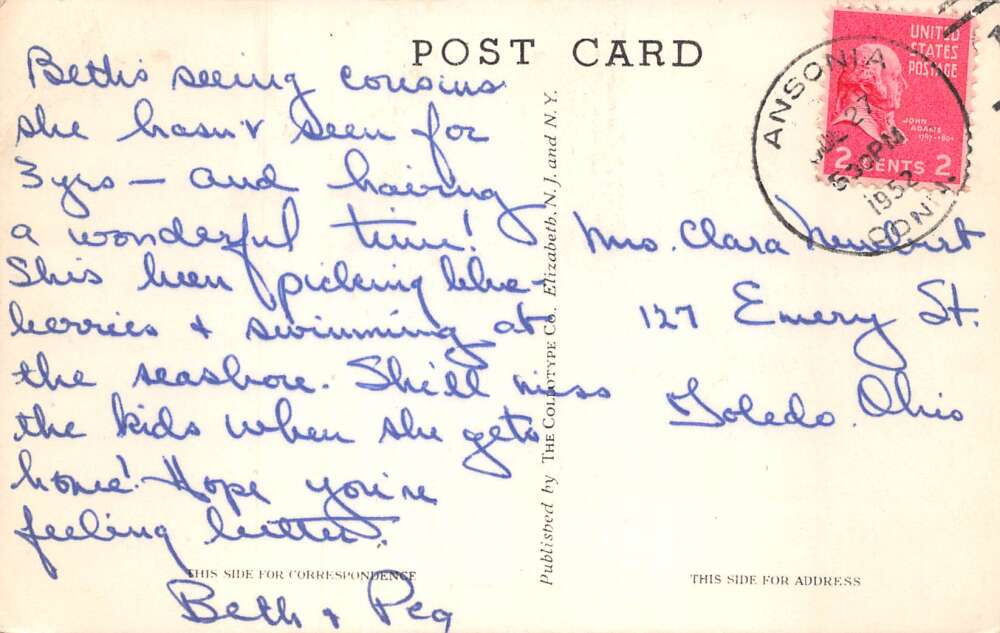 POST CARD
Beth's seeing cousins
she hasn't seen for
3 yrs — and having
a wonderful time!
She's been picking blue-
berries + swimming at
the seashore. She'll miss
the kids when she gets
home! Hope you're
feeling better.
THIS SIDE FOR CORRESPONDENCE
Beth + Peg
Published by THE COLLOTYPE CO., Elizabeth, N. J. and N. Y.
UNITED
STATES
POSTAGE
JOHN
ADAMS
1797-1801
2 CENTS 2
ANSONIA
27
630 PM
1952
CONN.
Mrs. Clara
127 Emery St.
Toledo, Ohio
THIS SIDE FOR ADDRESS